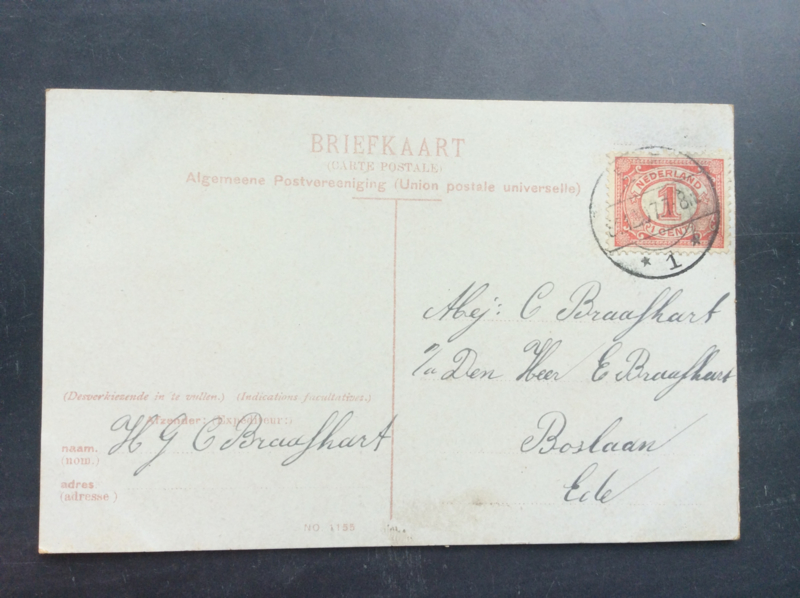 BRIEFKAART
(CARTE POSTALE)
Algemeene Postvereeniging (Union postale universelle)
NEDERLAND
1
CENT
1
Mej: C Braafhart
p/a Den Heer E Braafhart
Boslaan
Ede
(Desverkiezende in te vullen.) (Indications facultatives.)
Afzender: (Expediteur:)
H G C Braafhart
naam.
(nom.)
adres
(adresse)
NO. 1155